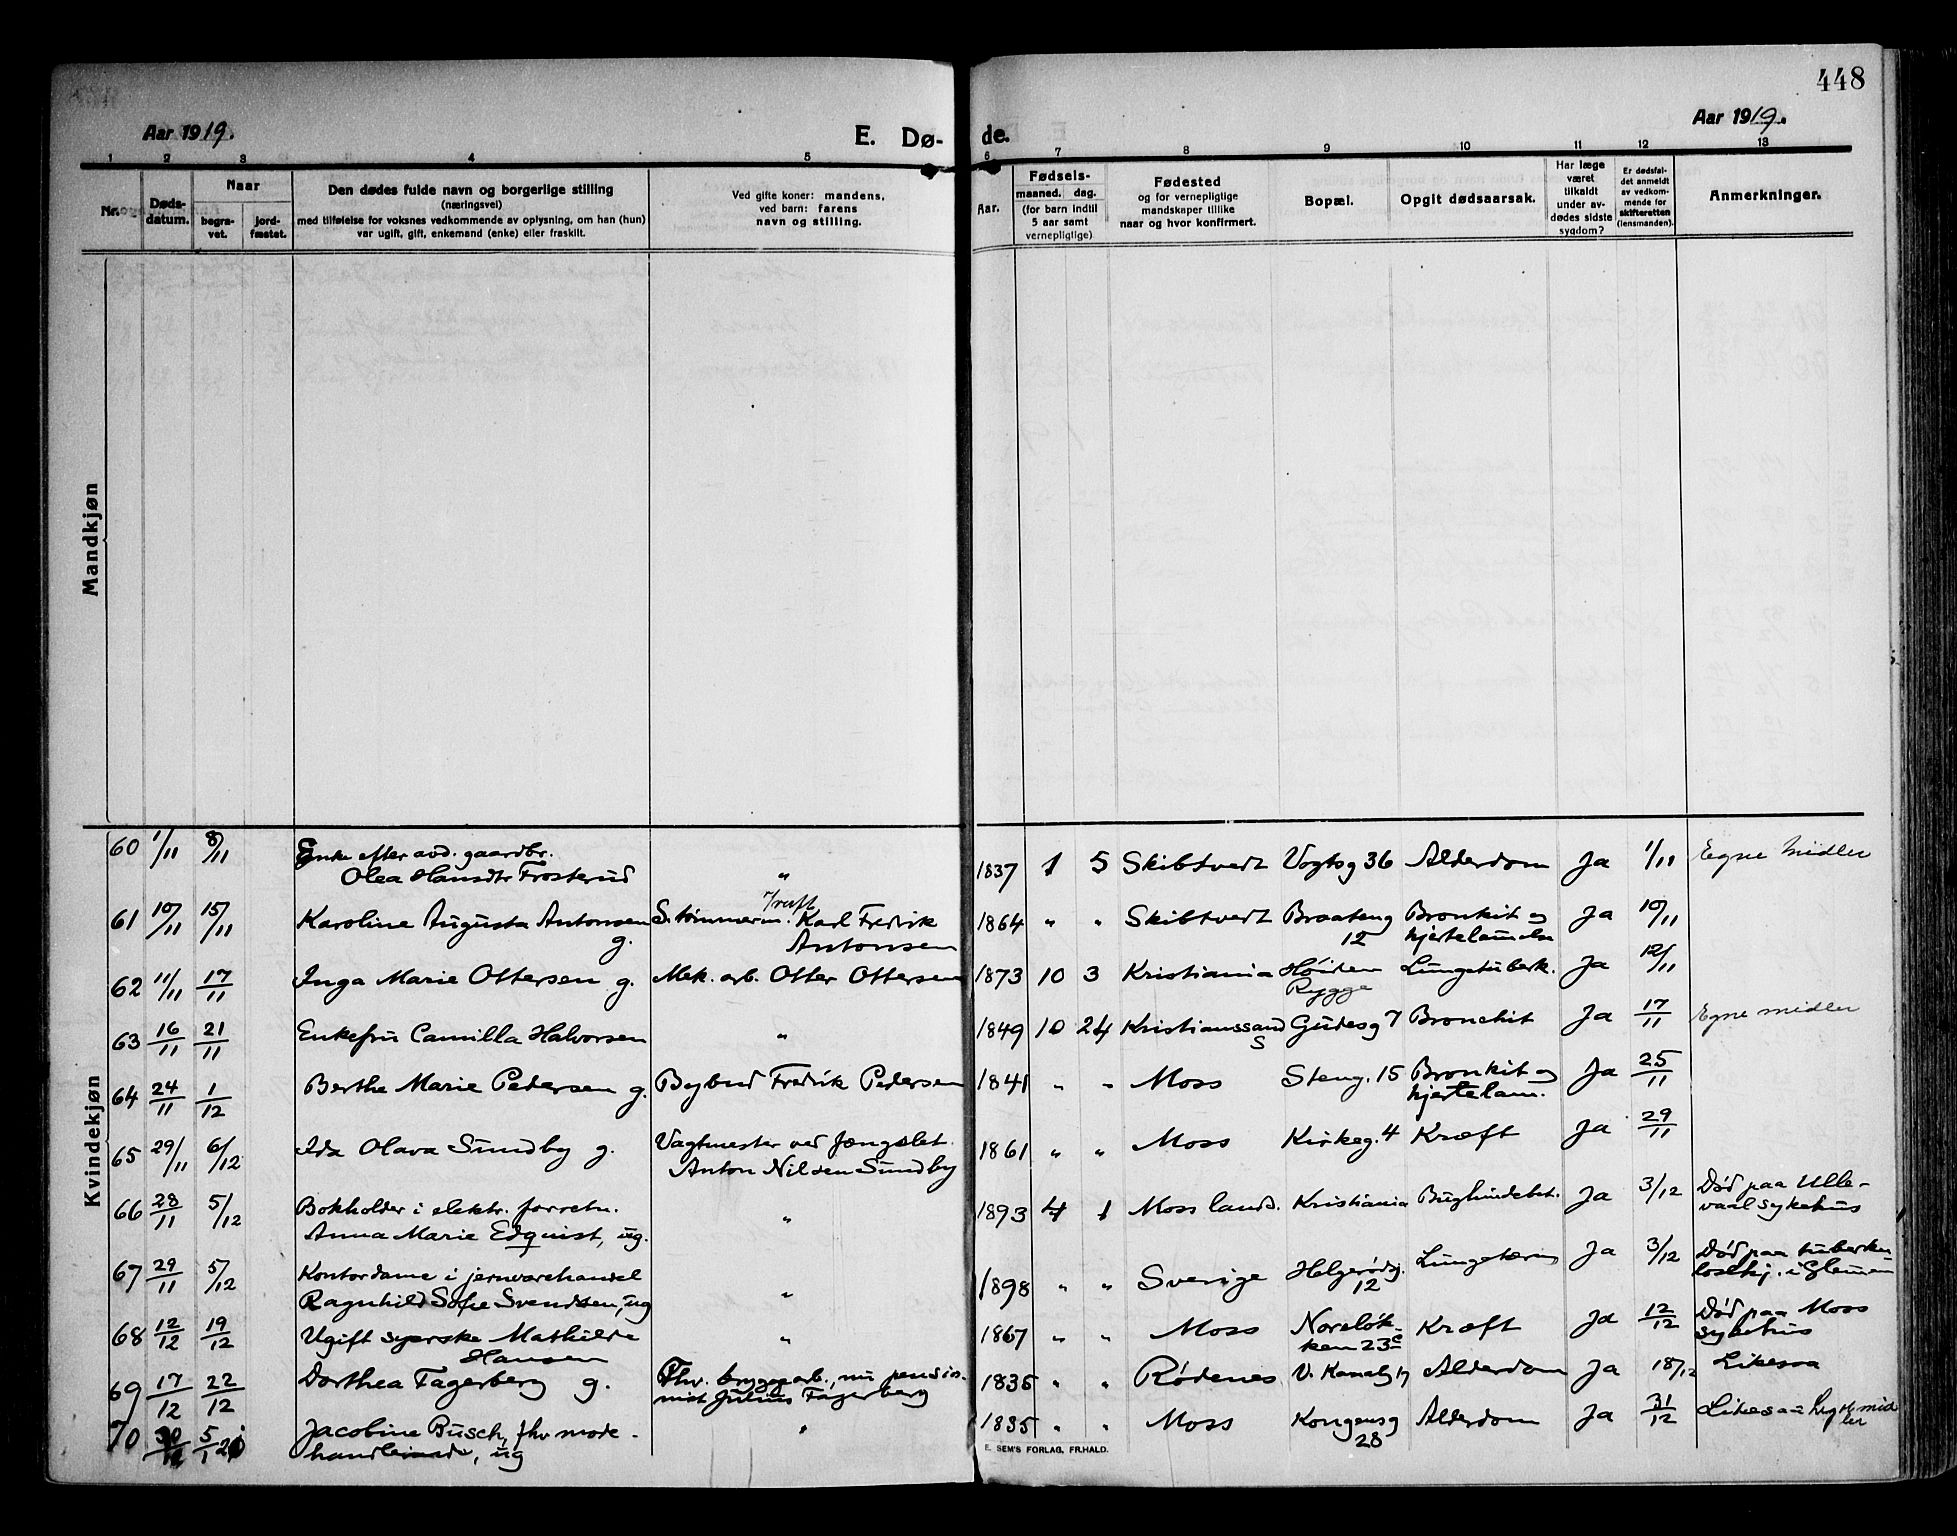 448
Aar 1919.
E. Dø-
de.
Aar 1919.
1 2 3 4 5 6 7 8 9 10 11 12 13
Nr.
Dødsdatum.
Naar
begravet.
jordfæstet.
Den dødes fulde navn og borgerlige stilling
(næringsvei)
med tilføielse for voksnes vedkommende av oplysning, om han (hun)
var ugift, gift, enkemand (enke) eller fraskilt.
Ved gifte koner: mandens,
ved barn: farens
navn og stilling.
Aar.
Fødsels-
maaned. dag.
(for barn indtil
5 aar samt
vernepligtige)
Fødested
og for vernepligtige
mandskaper tillike
naar og hvor konfirmert.
Bopæl.
Opgit dødsaarsak.
Har læge
været
tilkaldt
under av-
dødes sidste
sygdom?
Er dødsfal-
det anmeldt
av vedkom-
mende for
skifteretten
(lensmanden).
Anmerkninger.
Mandkjøn
Kvindekjøn
60 1/11 8/11 Enke efter avd. gaardbr.
Olea Hansdtr Frosterud " 1837 1 5 Skibtvedt Vogtsg 36 Alderdom Ja 1/11 Egne Midler
61 10/11 15/11 Karoline Augusta Antonsen g. S. tømmerm. Karl Fredrik
Antonsen 1864 " " Skibtvedt Braateng 12 Bronkit og
hjertelamelse Ja 10/11
62 11/11 17/11 Inga Marie Ottersen g. Mek. arb. Otter Ottersen 1873 10 3 Kristiania Høiden
Rygge Lungetuberk. Ja 12/11
63 16/11 21/11 Enkefru Camilla Halvorsen " 1849 10 24 Kristianssand S Gudesg 7 Bronchit Ja 17/11 Egne midler
64 24/11 1/12 Berthe Marie Pedersen g. Bybud Fredrik Pedersen 1841 " " Moss Steng. 15 Bronkit og
hjertelam. Ja 25/11
65 29/11 6/12 Ida Olava Sundby g. Vagtmester ved fængslet
Anton Nilsen Sundby 1861 " " Moss Kirkeg. 4 Kræft Ja 29/11
66 28/11 5/12 Bokholder i elektr. forretn.
Anna Marie Edquist, ug. " 1893 4 1 Moss lands. Kristiania Bughindebet. Ja 3/12 Død paa Ulle-
vaal sykehus
67 29/11 5/12 Kontordame i jernvarehandel
Ragnhild Sofie Svendsen, ug " 1898 " " Sverige Helgerødg. 12 Lungetæring Ja 3/12 Død paa tuberku-
losehj. i Glemmen
68 12/12 19/12 Ugift syerske Mathilde
Hansen " 1867 " " Moss Noreløk-
ken 23c Kræft Ja 12/12 Død paa Moss
sykehus
69 17/12 22/12 Dorthea Fagerberg g. Fhv. bryggearb., nu pensio-
nist Julius Fagerberg 1835 " " Rødenes V. Kanalg 17 Alderdom Ja 18/12 Likesaa
70 30/12 5/1 20 Jacobine Busch, fhv mode-
handlerinde, ug " 1835 " " Moss Kongensg 28 Alderdom Ja 31/12 Likesaa
E. SEM'S FORLAG, FR.HALD.